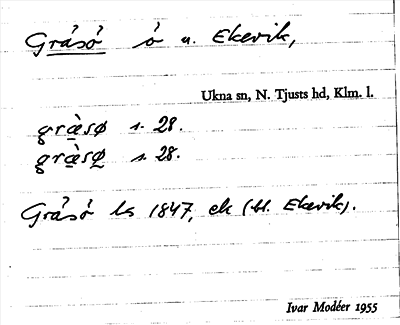 Gräsö ö u. Ekevik,
Ukna sn, N. Tjusts hd, Klm. l.
græ̀sø s. 28.
græ̀sø̣ s. 28.
Gräsö ls 1847, ek (bl. Ekevik).
Ivar Modéer 1955